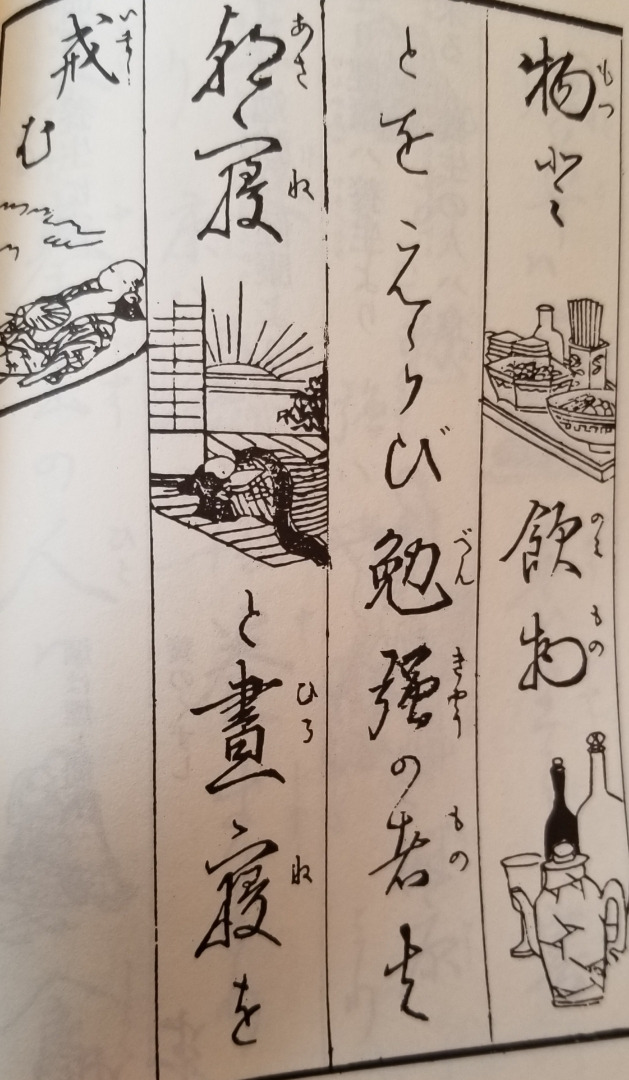 もつ のみ もの
物と飲物
べん きやう もの
とをえらび勉强の者
あさ ね ひる ね
朝寢と晝寢を
いまし
戒む